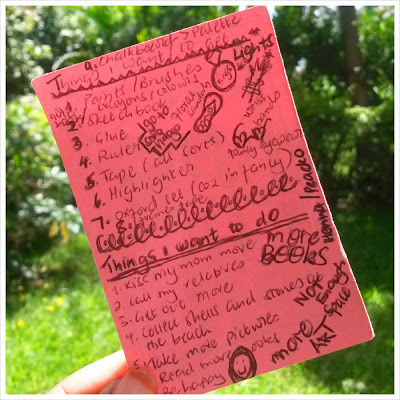 9. Chalkboard > Palette
Things I want to get
1. Paints/Brushes
crayons/colours
2. Sketchbook
3. Glue
4. Ruler
5. Tape (all sorts)
6. Highlighter
7. Oxford set (coz im fancy)
8.
Lights
rings
bands
fancy eyewear
Henna/
Things I want to do
1. Kiss my mom more
2. Call my relatives
3. Get out more
4. Collect shells and stones at
the beach
5. Take more pictures
Read more books
Be happy
more
BOOKS
more
ART
NOT
Enough
Space